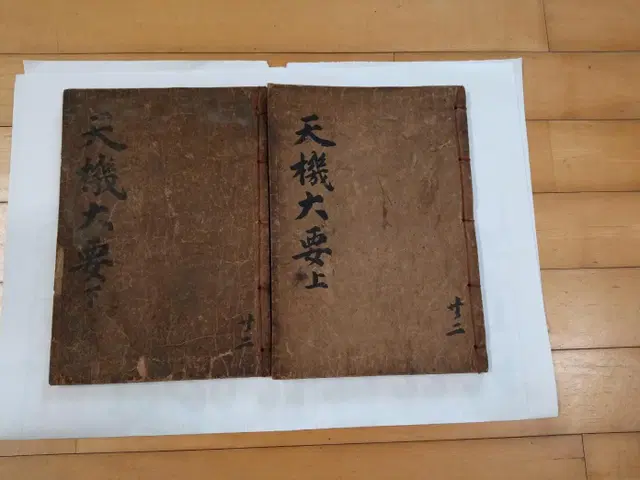 天機大要上
共二
天機大要下
共二